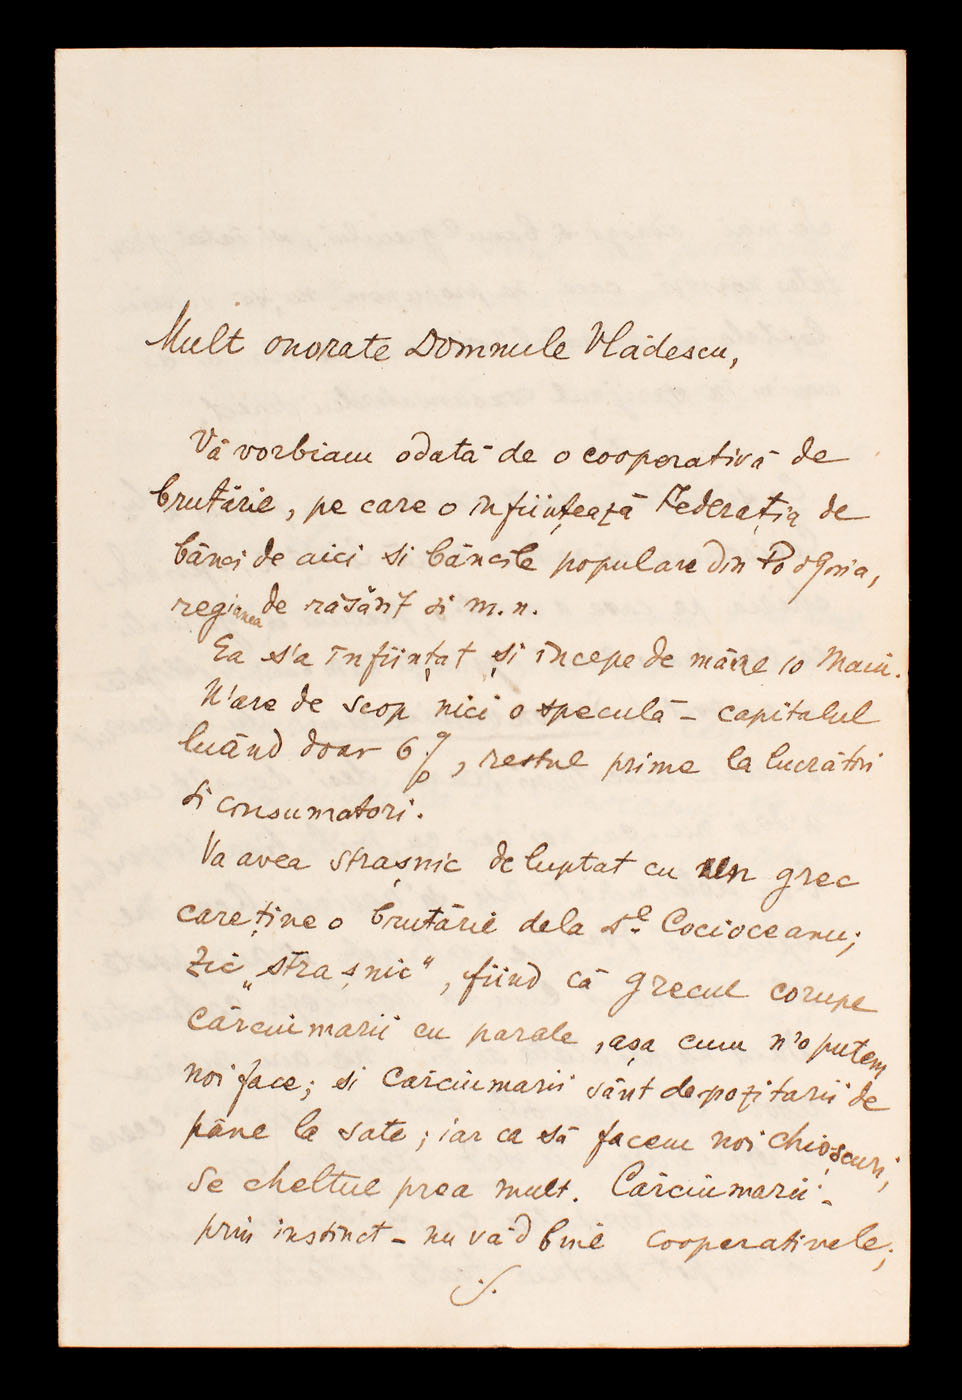 Mult onorate Domnule Vlădescu,
Vă vorbiam odată de o cooperativă de
brutărie, pe care o înființează Federația de
bănci de aici si băncile populare din Podgoria,
regiunea de răsărit si m. n.
Ea s'a înființat și începe de mâine 10 Maiŭ.
N'are de scop nici o speculă – capitalul
luând doar 6%, restul prime la lucrători
si consumatori.
Va avea strașnic de luptat cu un grec
care ține o brutărie dela Dl. Cocioceanu;
zic „strașnic", fiind că grecul corupe
cârciumarii cu parale, așa cum n'o putem
noi face; si cârciumarii sânt depozitarii de
pâne la sate; iar ca să facem noi chioșcuri,
se cheltue prea mult. Cârciumarii –
prin instinct – nu văd bine cooperativele;
./.